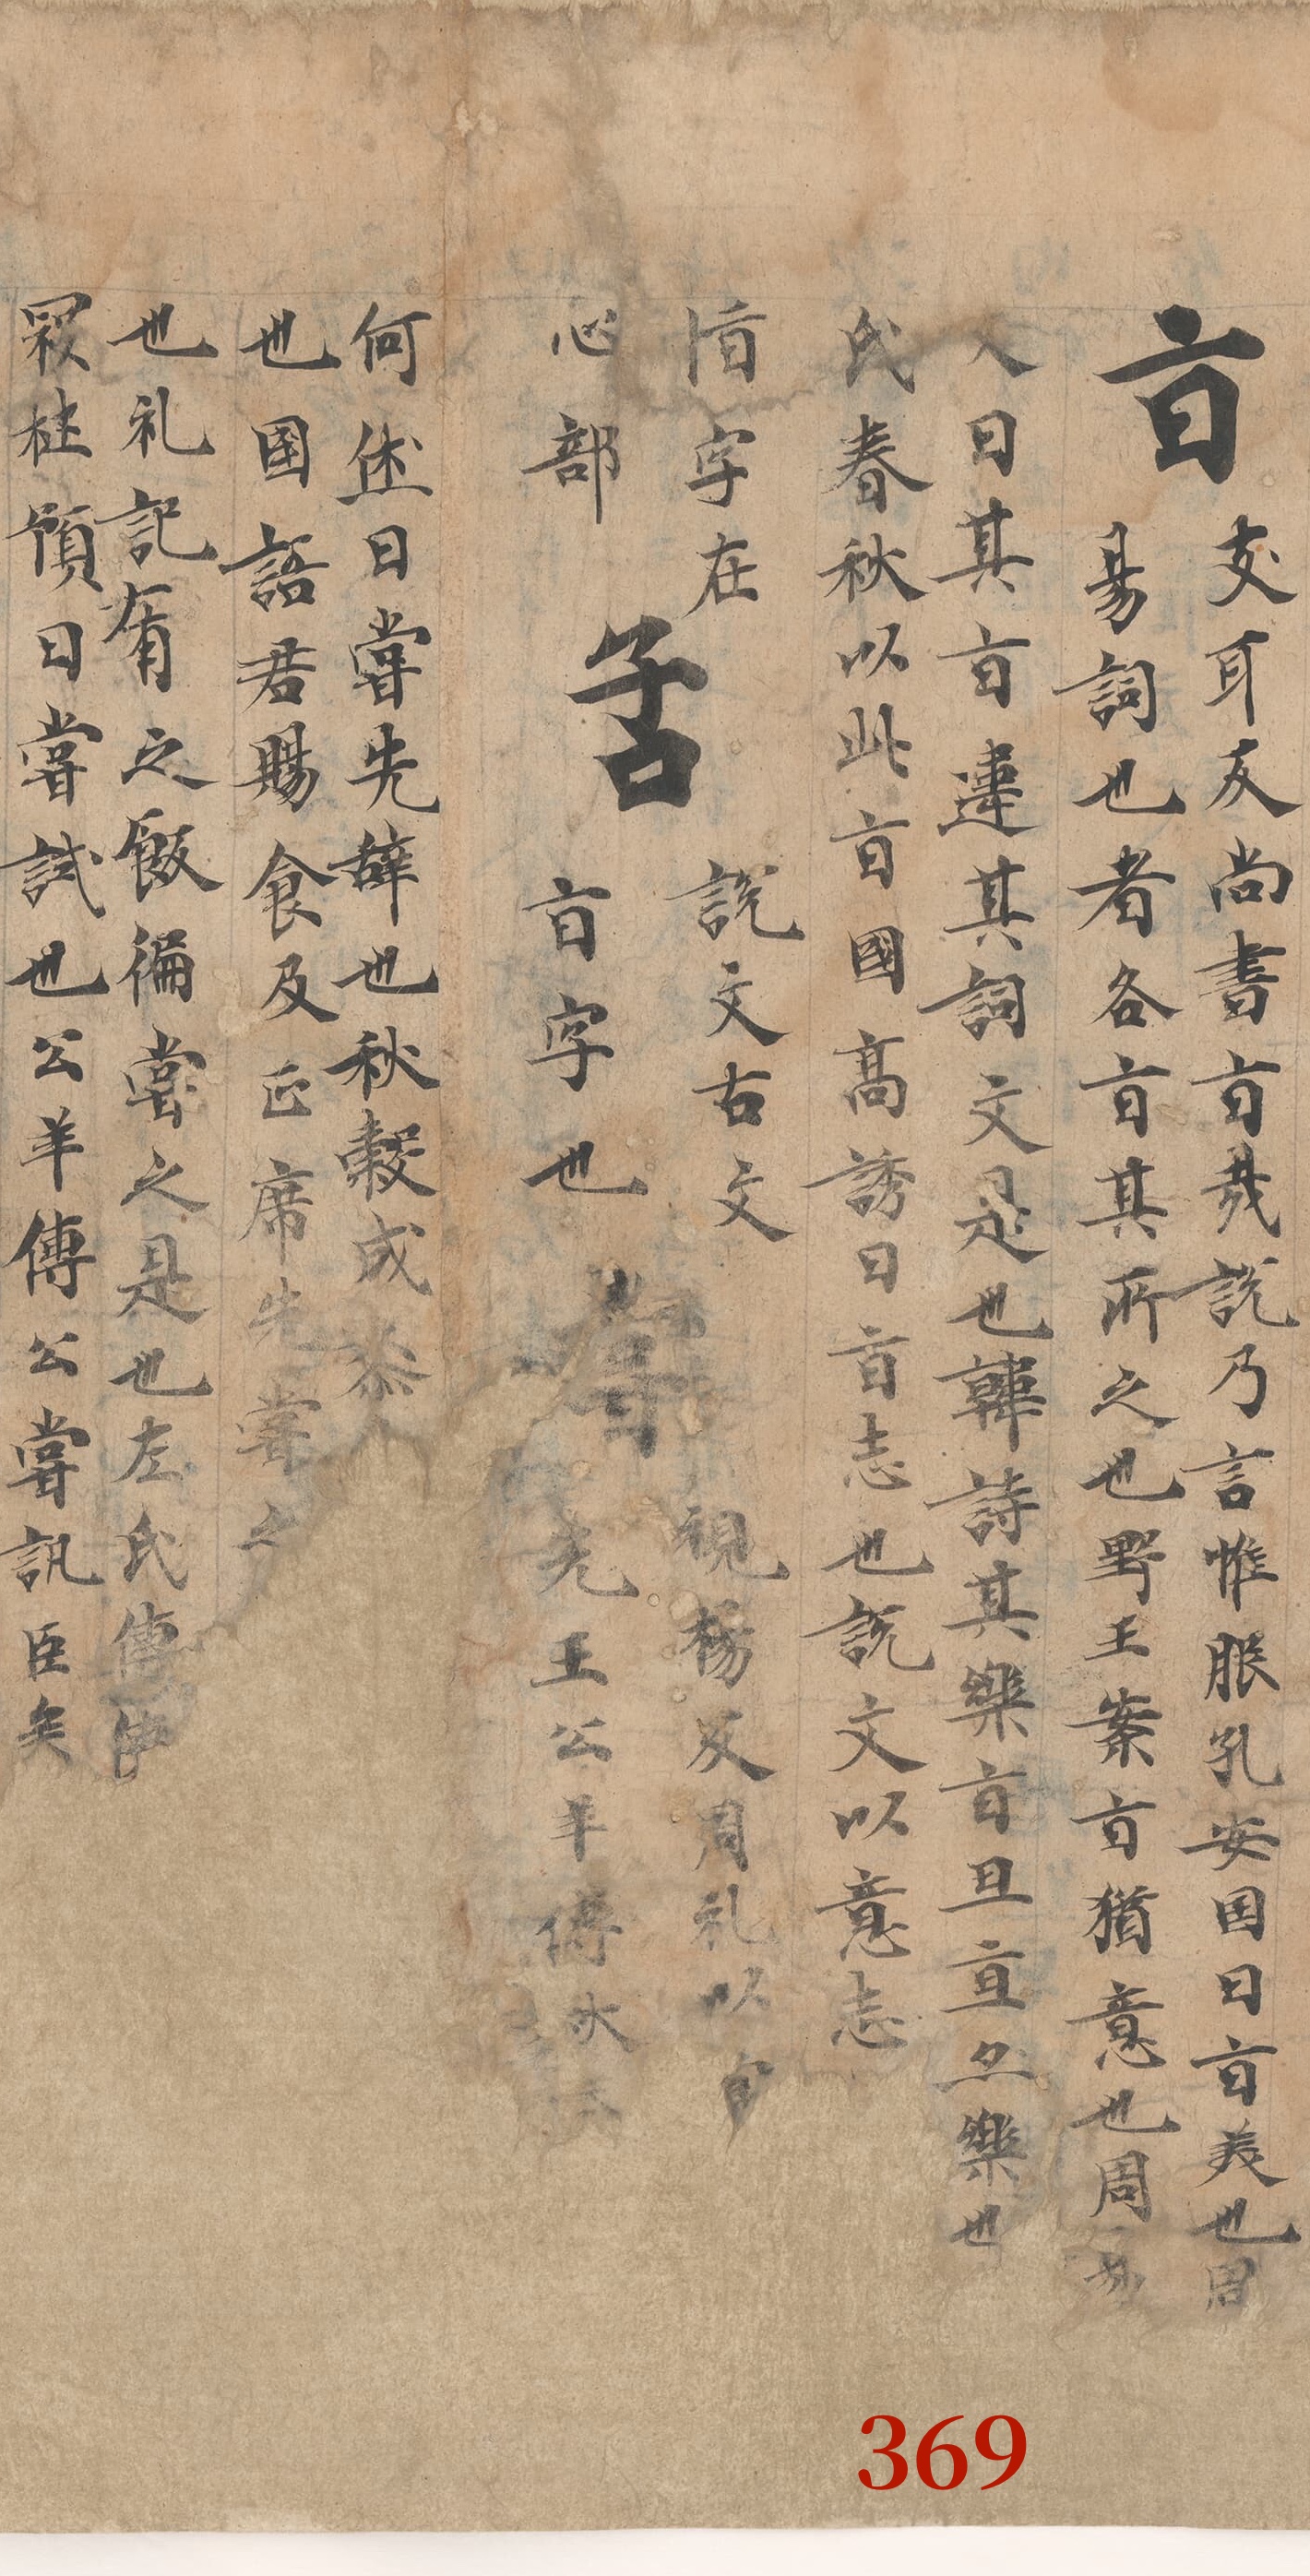 㫖
支耳反尚書㫖哉說乃言惟服孔安国曰㫖美也周
易詞也者各㫖其所之也野王案㫖猶意也周
人曰其㫖違其詞文是也韓詩其樂㫖且亶亦樂也
氏春秋以此㫖國高誘曰㫖志也說文以意志
恉字在
心部
舌
說文古文
㫖字也
甞
視楊反周礼以
先王公羊傳
何休曰甞先辞也秋穀成黍
也国語君賜食及正席先甞之
也礼記有之飯徧甞之是也左氏傳
預曰甞試也公羊傳公甞訊臣矣
369